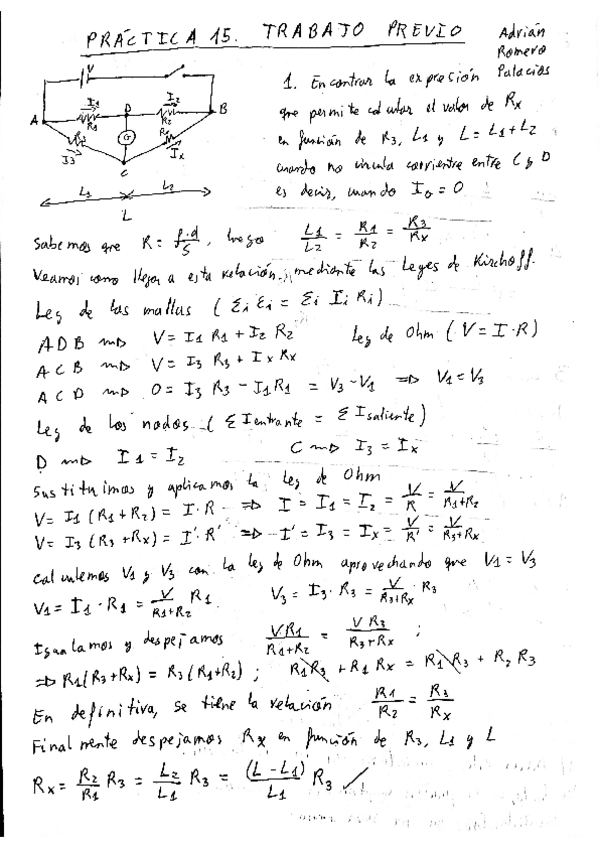 PRÁCTICA 15. TRABAJO PREVIO
Adrián
Romero
Palacios
V
I1
D
I2
A
R1
R2
B
R3
G
Rx
I3
Ix
C
L1
L2
L
1. Encontrar la expresión
que permite calcular el valor de Rx
en función de R3, L1 y L = L1 + L2
cuando no circula corriente entre C y D
es decir, cuando I0 = 0
Sabemos que R = ρ·d/S, luego L1/L2 = R1/R2 = R3/Rx
Veamos como llegar a esta relación, mediante las Leyes de Kirchoff.
Ley de las mallas (Σi Ei = Σi Ii Ri)
ADB ⟿ V = I1 R1 + I2 R2 Ley de Ohm (V = I·R)
ACB ⟿ V = I3 R3 + Ix Rx
ACD ⟿ 0 = I3 R3 - I1 R1 = V3 - V1 ⇒ V1 = V3
Ley de los nodos (Σ Ientrante = Σ Isaliente)
D ⟿ I1 = I2 C ⟿ I3 = Ix
Sustituimos y aplicamos la ley de Ohm
V = I1 (R1 + R2) = I·R ⇒ I = I1 = I2 = V/R = V/(R1+R2)
V = I3 (R3 + Rx) = I'·R' ⇒ I' = I3 = Ix = V/R' = V/(R3+Rx)
Calculemos V1 y V3 con la ley de Ohm aprovechando que V1 = V3
V1 = I1 · R1 = V/(R1+R2) R1 V3 = I3 · R3 = V/(R3+Rx) · R3
Igualamos y despejamos V R1/(R1+R2) = V R3/(R3+Rx) ;
⇒ R1(R3+Rx) = R3(R1+R2) ; R1R3 + R1 Rx = R1 R3 + R2 R3
En definitiva, se tiene la relación R1/R2 = R3/Rx
Finalmente despejamos Rx en función de R3, L1 y L
Rx = R2/R1 R3 = L2/L1 R3 = (L - L1)/L1 R3 ✓